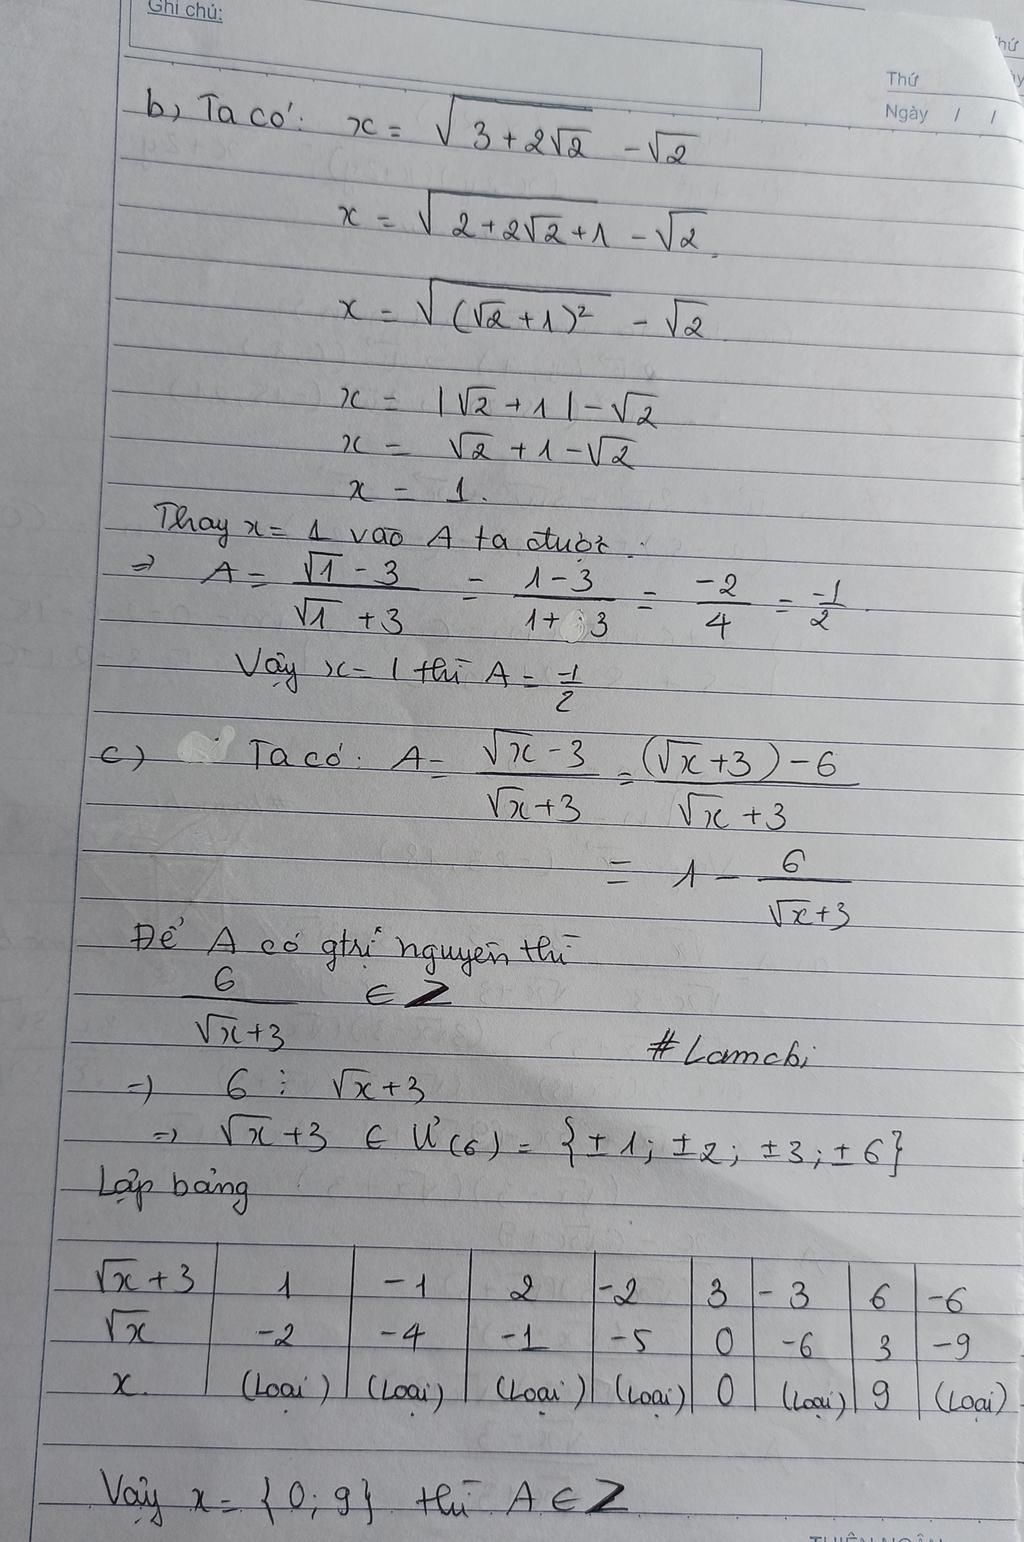 Ghi chú:
Thứ
Ngày / /
b, Ta có: x = √(3+2√2) - √2
x = √(2+2√2+1) - √2
x = √((√2+1)²) - √2
x = |√2+1| - √2
x = √2 + 1 - √2
x = 1.
Thay x = 1 vào A ta được:
⇒ A = (√1 - 3)/(√1 + 3) = (1-3)/(1+3) = -2/4 = -1/2
Vậy x = 1 thì A = -1/2
c) Ta có: A = (√x - 3)/(√x + 3) = ((√x+3) - 6)/(√x + 3)
= 1 - 6/(√x+3)
Để A có gtrị nguyên thì
6/(√x+3) ∈ Z
#Lamchi
⇒ 6 ⋮ √x+3
⇒ √x+3 ∈ Ư(6) = {±1; ±2; ±3; ±6}
Lập bảng
√x+3 1 -1 2 -2 3 -3 6 -6
√x -2 -4 -1 -5 0 -6 3 -9
x (Loại) (Loại) (Loại) (Loại) 0 (Loại) 9 (Loại)
Vậy x = {0; 9} thì A ∈ Z